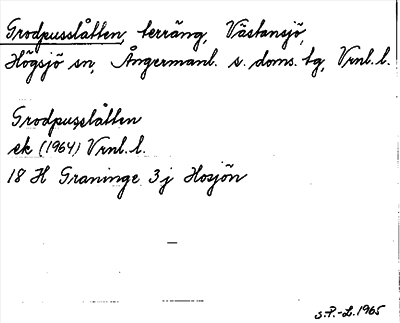 Grodpusslåtten, terräng, Västansjö,
Högsjö sn, Ångermanl. s. doms. tg, Vrnl. l.
Grodpusslåtten
ek (1964) Vrnl. l.
18 H Graninge 3 j Hosjön
S.P.-L. 1965